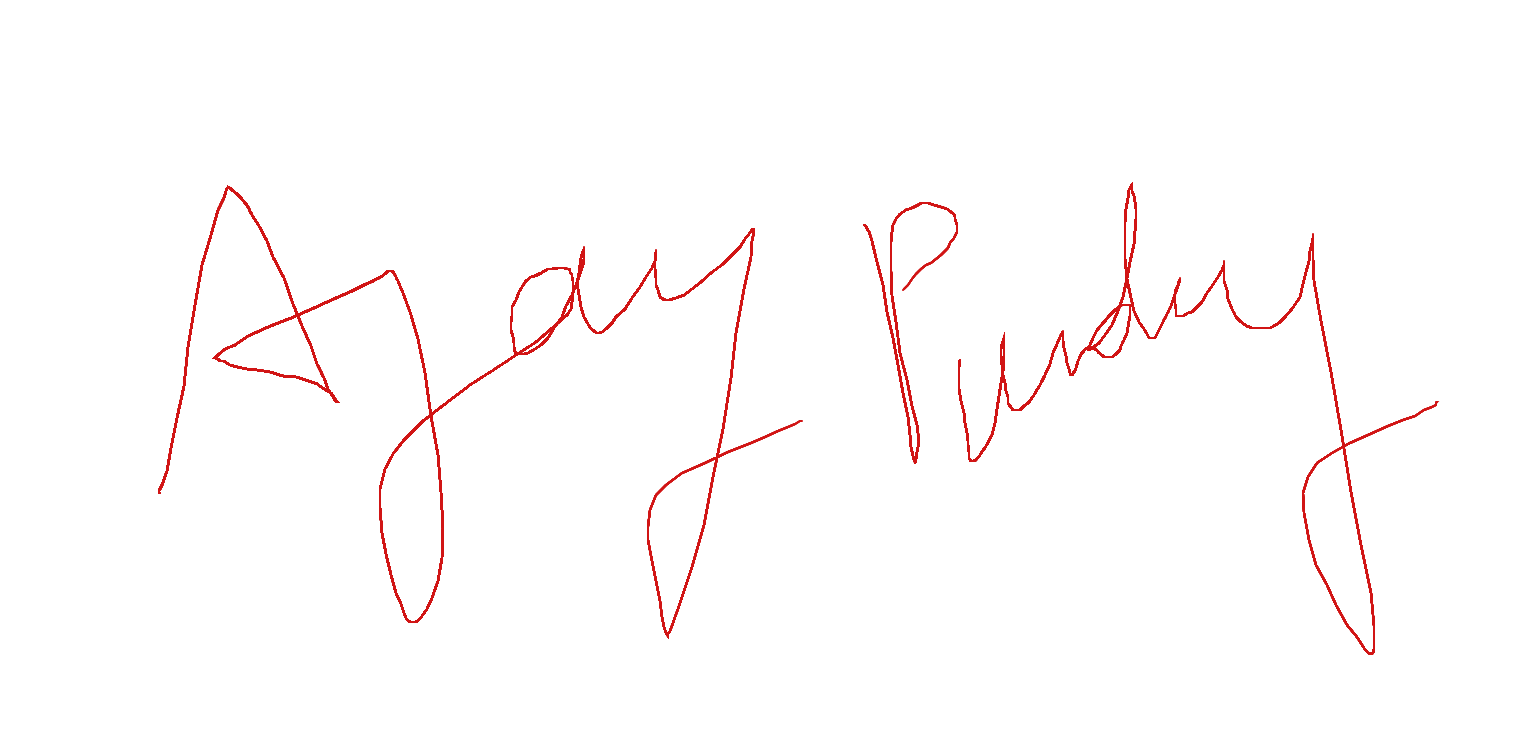 Ajay Pandey